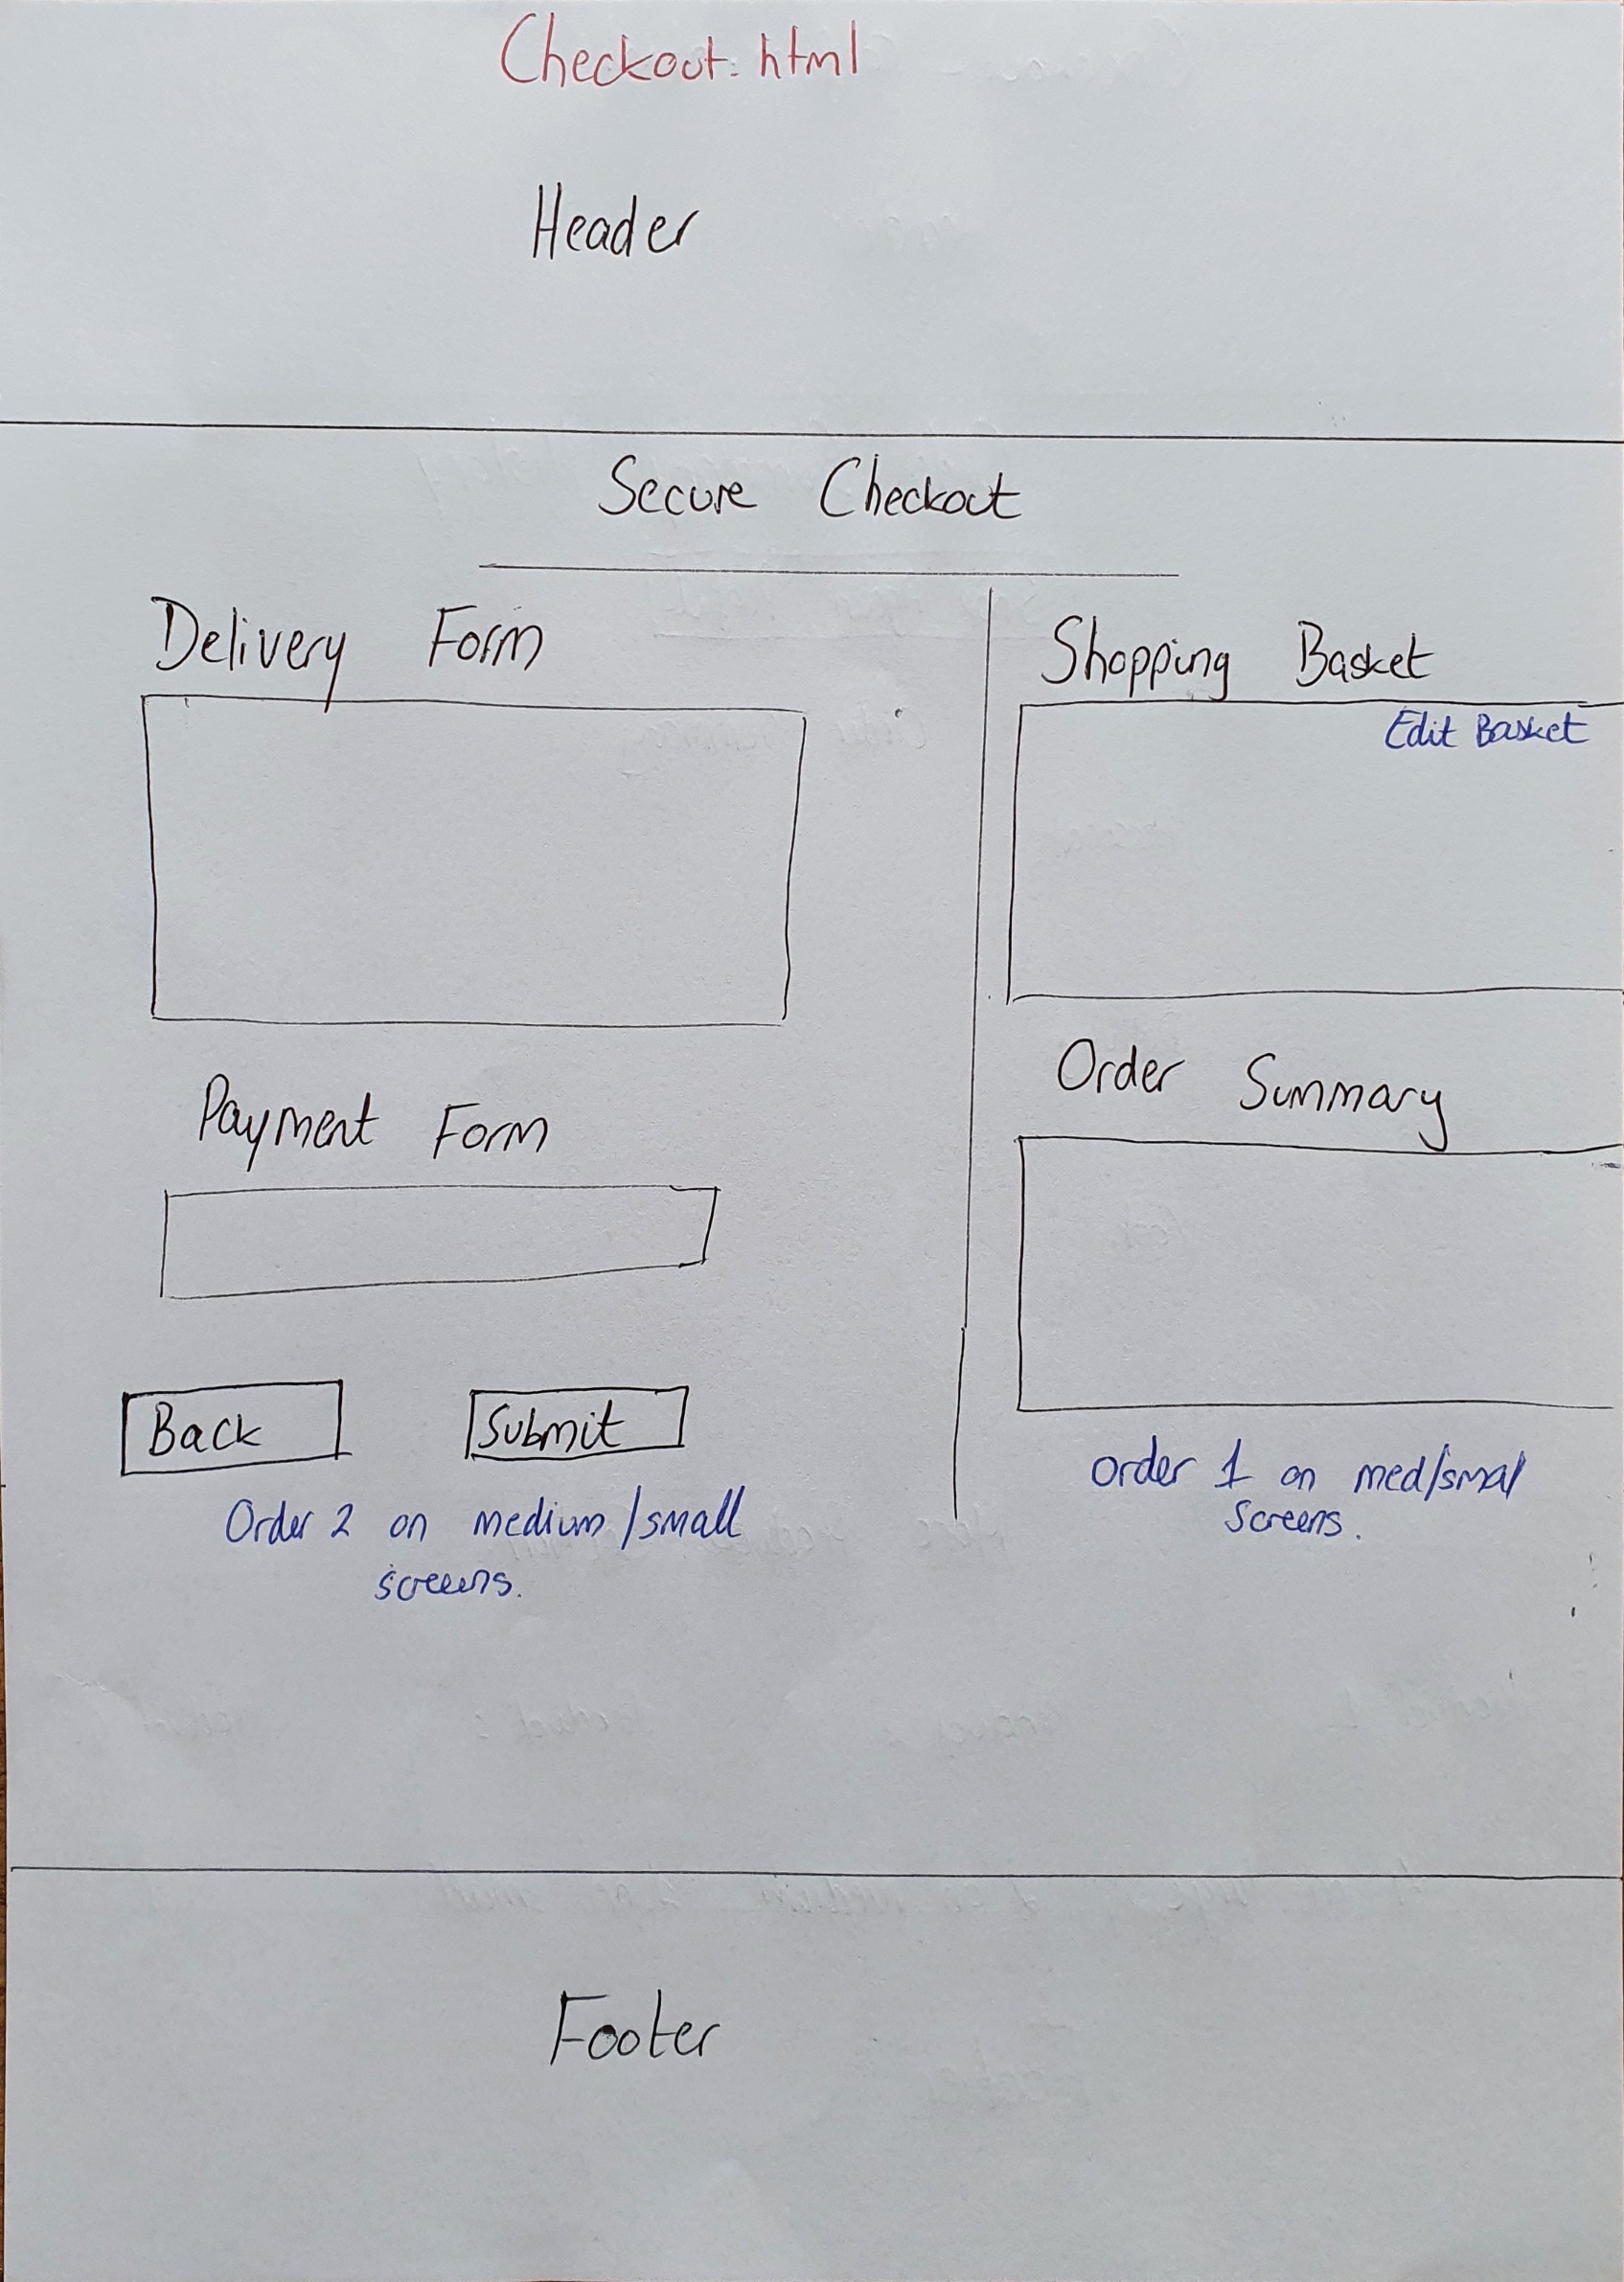 Checkout.html
Header
Secure Checkout
Delivery Form
Payment Form
Back
Submit
Order 2 on medium/small
screens.
Shopping Basket
Edit Basket
Order Summary
Order 1 on med/smal
Screens.
Footer